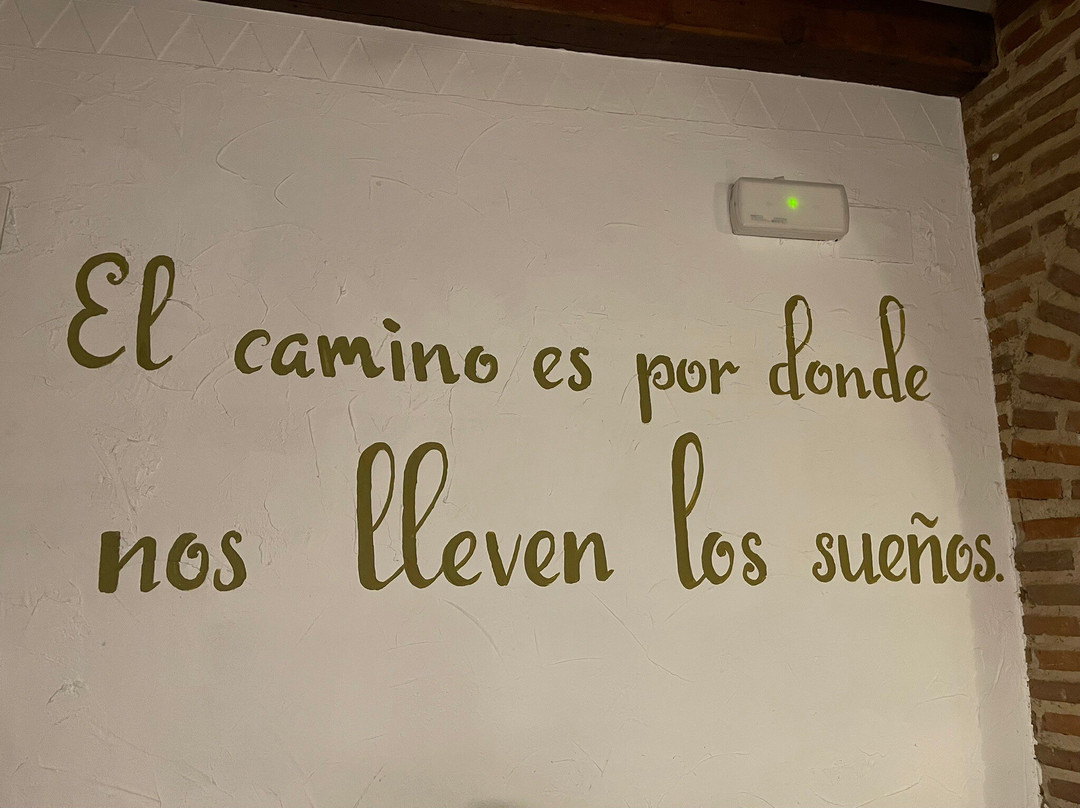 El camino es por donde
nos lleven los sueños.